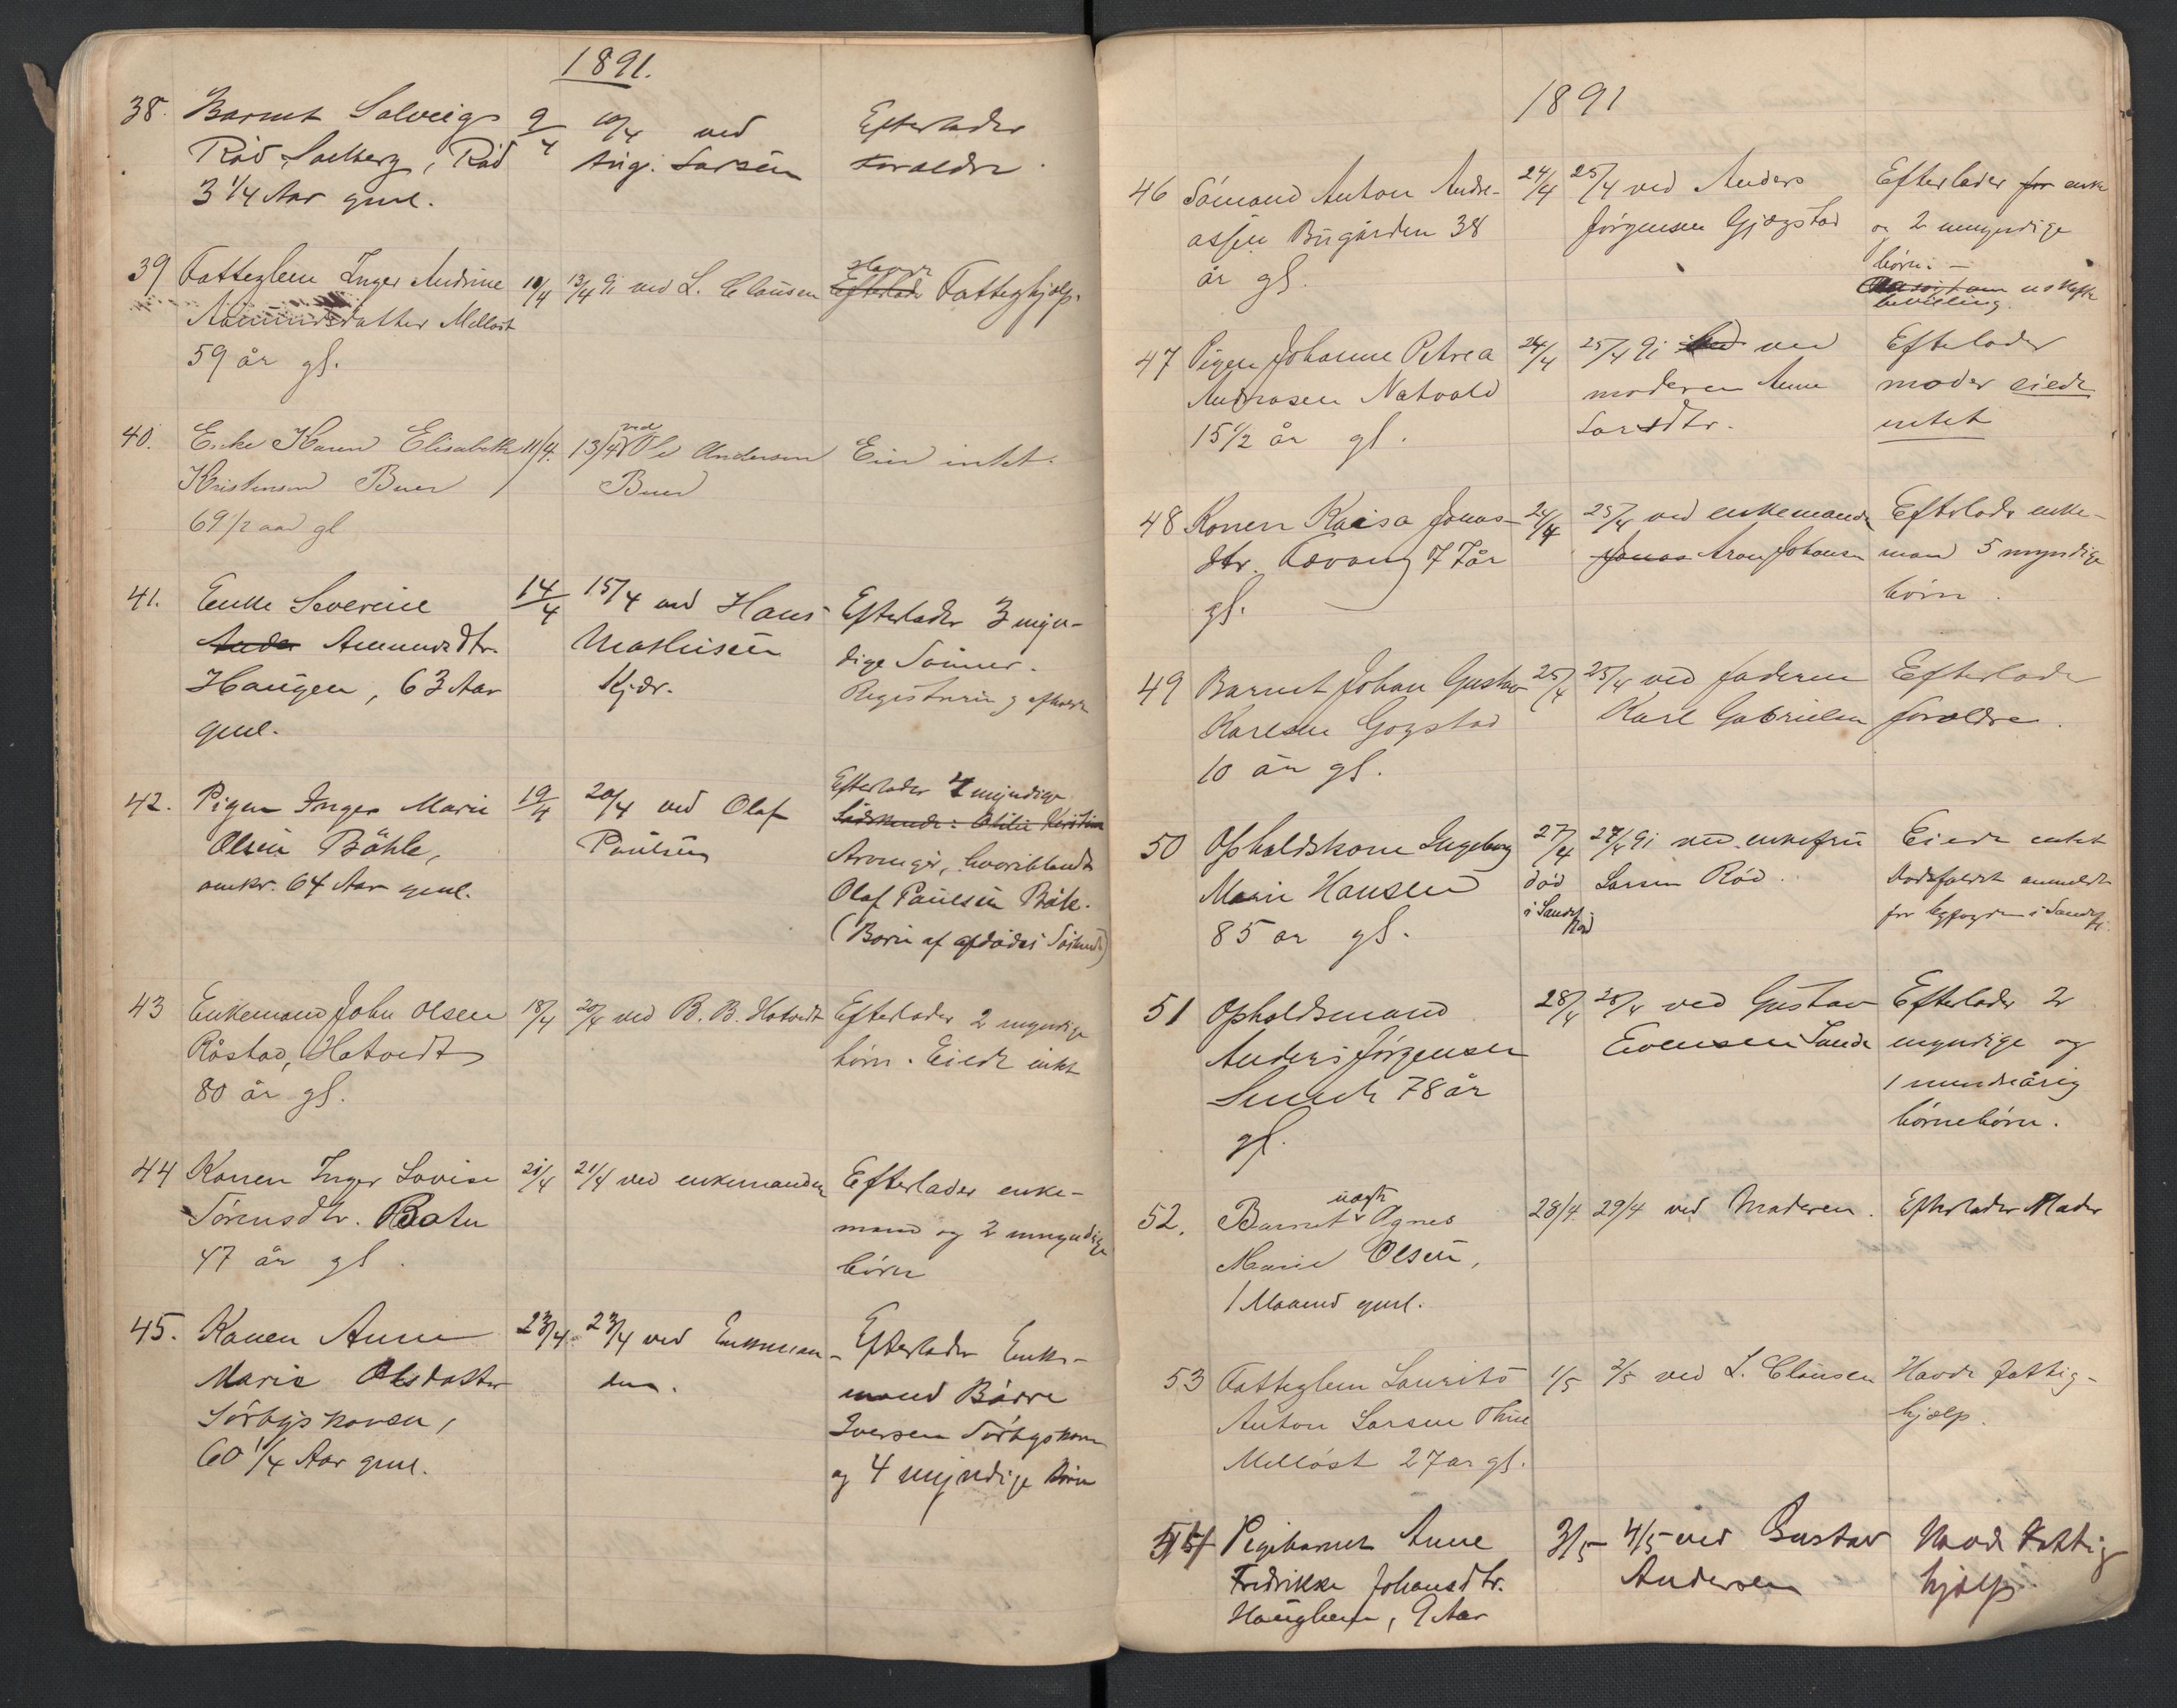 1891.
38. Barnet Solveig
Röd Solberg, Röd
3 1/4 Aar gml.
9/4
10/4 ved
Aug. Larsen
Efterlader
Foraldre.
39 Fatteglem Inger Andrine
Aamundsdatter Melløst
59 år gl.
10/4
13/4 91 ved L. Clausen
Havde
Efterlader Fatteghjælp.
40. Enke Karen Elisabeth
Kristensen Buer
69 1/2 aar gl
11/4.
13/4 ved Ole Andersen
Buer
Eier intet.
41. Enke Severine
Ander Amundsdtr.
Haugen, 63 Aar
gml.
14/4
15/4 ved Hans
Mathisen
Kjær.
Efterlader 3 myn-
dige Sönner.
Registrering afholdt
42. Pigen Inger Marie
Olsen Böhle,
omkr. 64 Aar gml.
19/4
20/4 ved Olaf
Paulsen
Efterlader 4 myndige
Södskende: Otilie Kristine
Arvinger, hvoriblandt
Olaf Paulsen Böle.
(Børn af afdødes Söskende)
43 Enkemand John Olsen
Råstad, Hotvedt
80 år gl.
18/4
20/4 ved B. B. Hotvedt
Efterlader 2 myndige
børn. Eiede intet
44 Konen Inger Lovise
Sørensdtr. Botn
47 år gl.
21/4
21/4 ved enkemanden
Efterlader enke-
mand og 2 umyndige
børn
45. Konen Anne
Marie Olsdatter
Sörbyskoven,
60 1/4 Aar gml.
23/4
23/4 ved Enkeman-
den.
Efterlader Enke-
mand Börre
Iversen Sörbyskoven
og 4 myndige Börn
1891
46 Sömand Anton Andre-
assen Bugården 38
år gl.
24/4
25/4 ved Anders
Jørgensen Gjøgstad
Efterlader for enke
og 2 umyndige
børn. -
uskifte
bevilling.
47 Pigen Johanne Petrea
Andreasen Natvald
15 1/2 år gl.
24/4
25/4 91 ved
moderen Anne
Larsdtr.
Efterlader
moder eiede
intet
48 Konen Kaisa Jonas-
dtr. Åsvang 77 år
gl.
24/4
25/4 ved enkemanden
Jonas Aron Johansen
Efterlader enke-
mand 5 myndige
børn.
49 Barnet Johan Gustav
Karlsen Gogstad
10 år gl.
25/4
25/4 ved faderen
Karl Gabrielsen
Efterlader
forældre.
50 Opholdskone Ingeborg
Marie Hansen
85 år gl.
27/4
död
i Sandef
iord
28/4 91 ved enkefru
Larsen Röd.
Eiede intet
Dødsfaldet anmeldt
for byfogden i Sandefj.
51 Opholdsmand
Anders Jørgensen
Sunde 78 år
gl.
28/4
28/4 ved Gustav
Evensen Sunde
Efterlader 2
myndige og
1 mindreårig
børnebørn.
52. Barnet uægte Agnes
Marie Olsen,
1 Maaned gml.
28/4.
29/4 ved Moderen.
Efterlader Moder
53 Fatteglem Lauritz
Anton Larsen Thue
Melløst 27 år gl.
1/5
2/5 ved L. Clausen
Havde fattig-
hjælp.
54 Pigebarnet Anne
Fredrikke Johansdtr.
Hauglem, 9 Aar
3/5
4/5 ved Gustav
Andersen
Havde Fattig
hjælp.